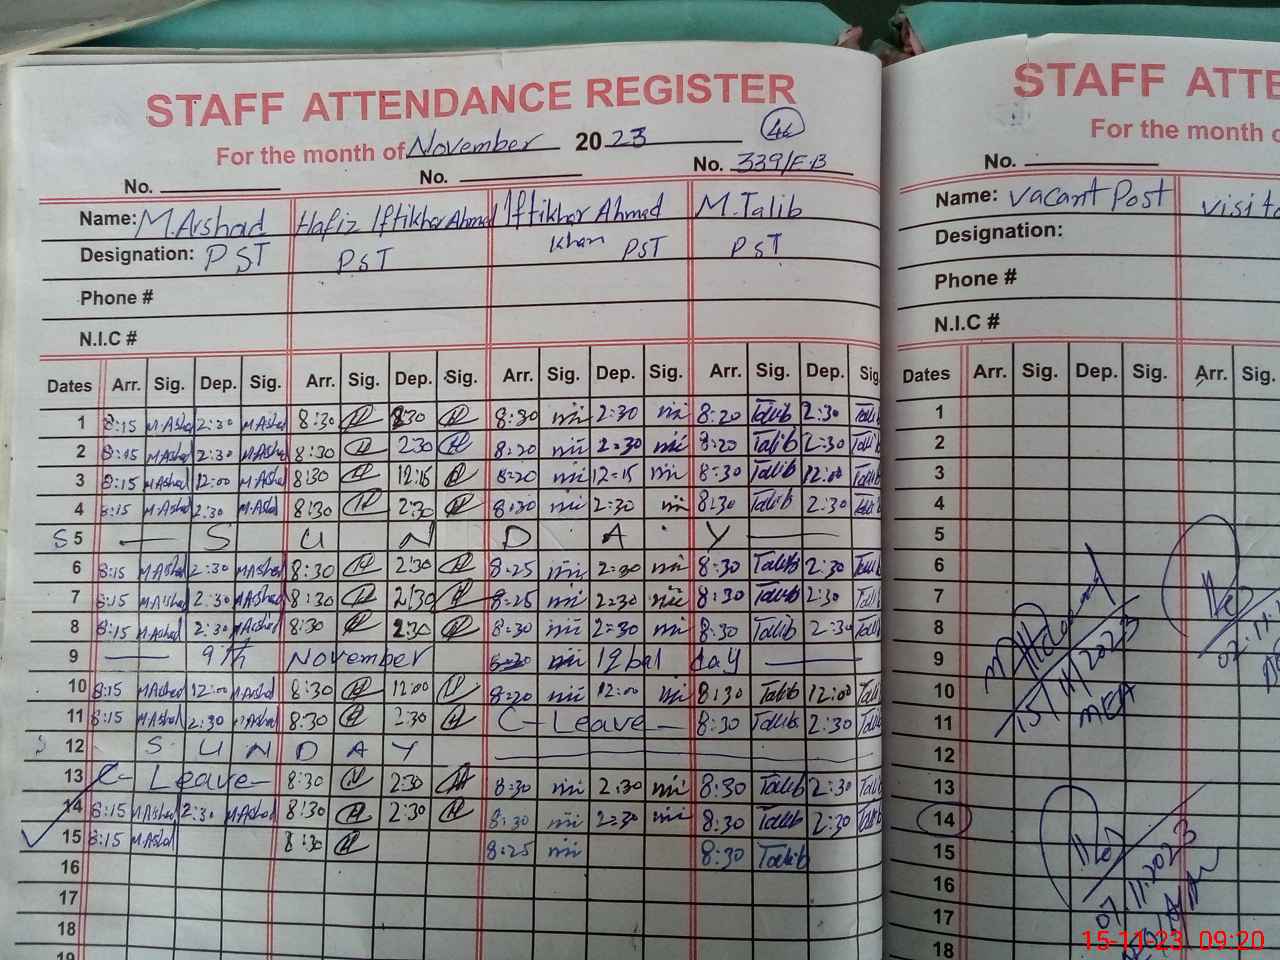 STAFF ATTENDANCE REGISTER
For the month of November 2023
46
No. No. No. 339/EB
Name: M.Arshad Hafiz Iftikhar Ahmed Iftikhar Ahmed Khan M.Talib
Designation: PST PST PST PST
Phone #
N.I.C #
Dates Arr. Sig. Dep. Sig. Arr. Sig. Dep. Sig. Arr. Sig. Dep. Sig. Arr. Sig. Dep. Sig
1 8:15 M Arshad 2:30 M Arshad 8:30 2:30 8:30 2:30 8:20 Talib 2:30 Talib
2 8:15 M Arshad 2:30 M Arshad 8:30 2:30 8:20 2:30 8:20 Talib 2:30 Talib
3 8:15 M Arshad 12:00 M Arshad 8:30 12:15 8:20 12=15 8:30 Talib 12:00 Talib
4 8:15 M Arshad 2:30 M Arshad 8:30 2:30 8:30 2:30 8:30 Talib 2:30 Talib
S 5 S U N D A Y
6 8:15 M Arshad 2:30 M Arshad 8:30 2:30 8:25 2:30 8:30 Talib 2:30 Talib
7 8:15 M Arshad 2:30 M Arshad 8:30 2:30 8:25 2:30 8:30 Talib 2:30 Talib
8 8:15 M Arshad 2:30 M Arshad 8:30 2:30 8:30 2=30 8:30 Talib 2:30 Talib
9 9th November Iqbal day
10 8:15 M Arshad 12:00 M Arshad 8:30 12:00 8:20 12:00 8:30 Talib 12:00 Talib
11 8:15 M Arshad 2:30 M Arshad 8:30 2:30 C-Leave 8:30 Talib 2:30 Talib
S 12 S U N D A Y
13 C-Leave 8:30 2:30 8:30 2:30 8:30 Talib 2:30 Talib
14 8:15 M Arshad 2:30 M Arshad 8:30 2:30 8:30 2=30 8:30 Talib 2:30 Talib
15 8:15 M Arshad 8:30 8:25 8:30 Talib
16
17
18
19
STAFF ATTE
For the month o
No.
Name: Vacant Post Visit
Designation:
Phone #
N.I.C #
Dates Arr. Sig. Dep. Sig. Arr. Sig.
1
2
3
4
5
6
7
8
9
10
11
12
13
14
15
16
17
18
15/11/2023
MEA
02.11
07.11.2023
15-11-23 09:20